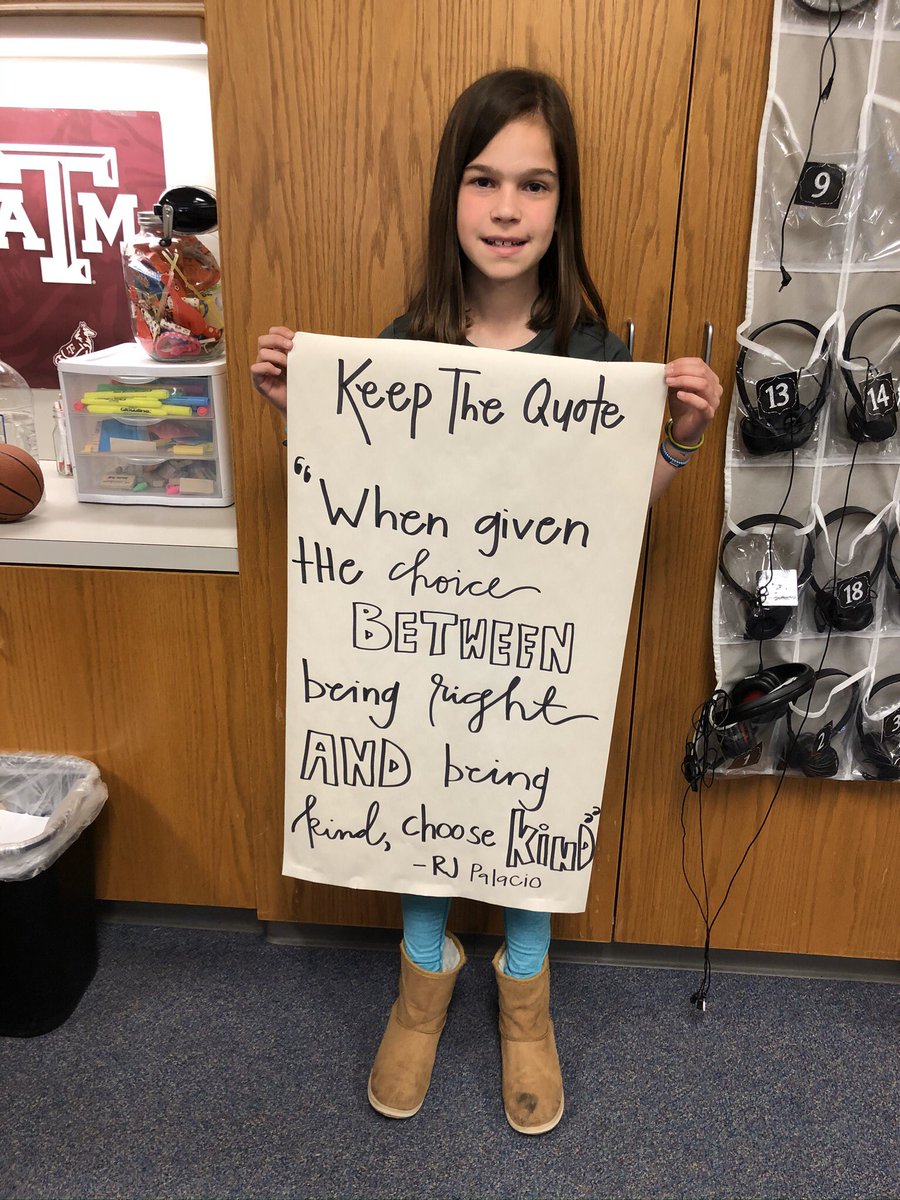 ATM
Keep The Quote
"When given
tHe choice
BETWEEN
being right
AND being
kind, choose KiND"
-RJ Palacio
9
13
14
18
1
2
3